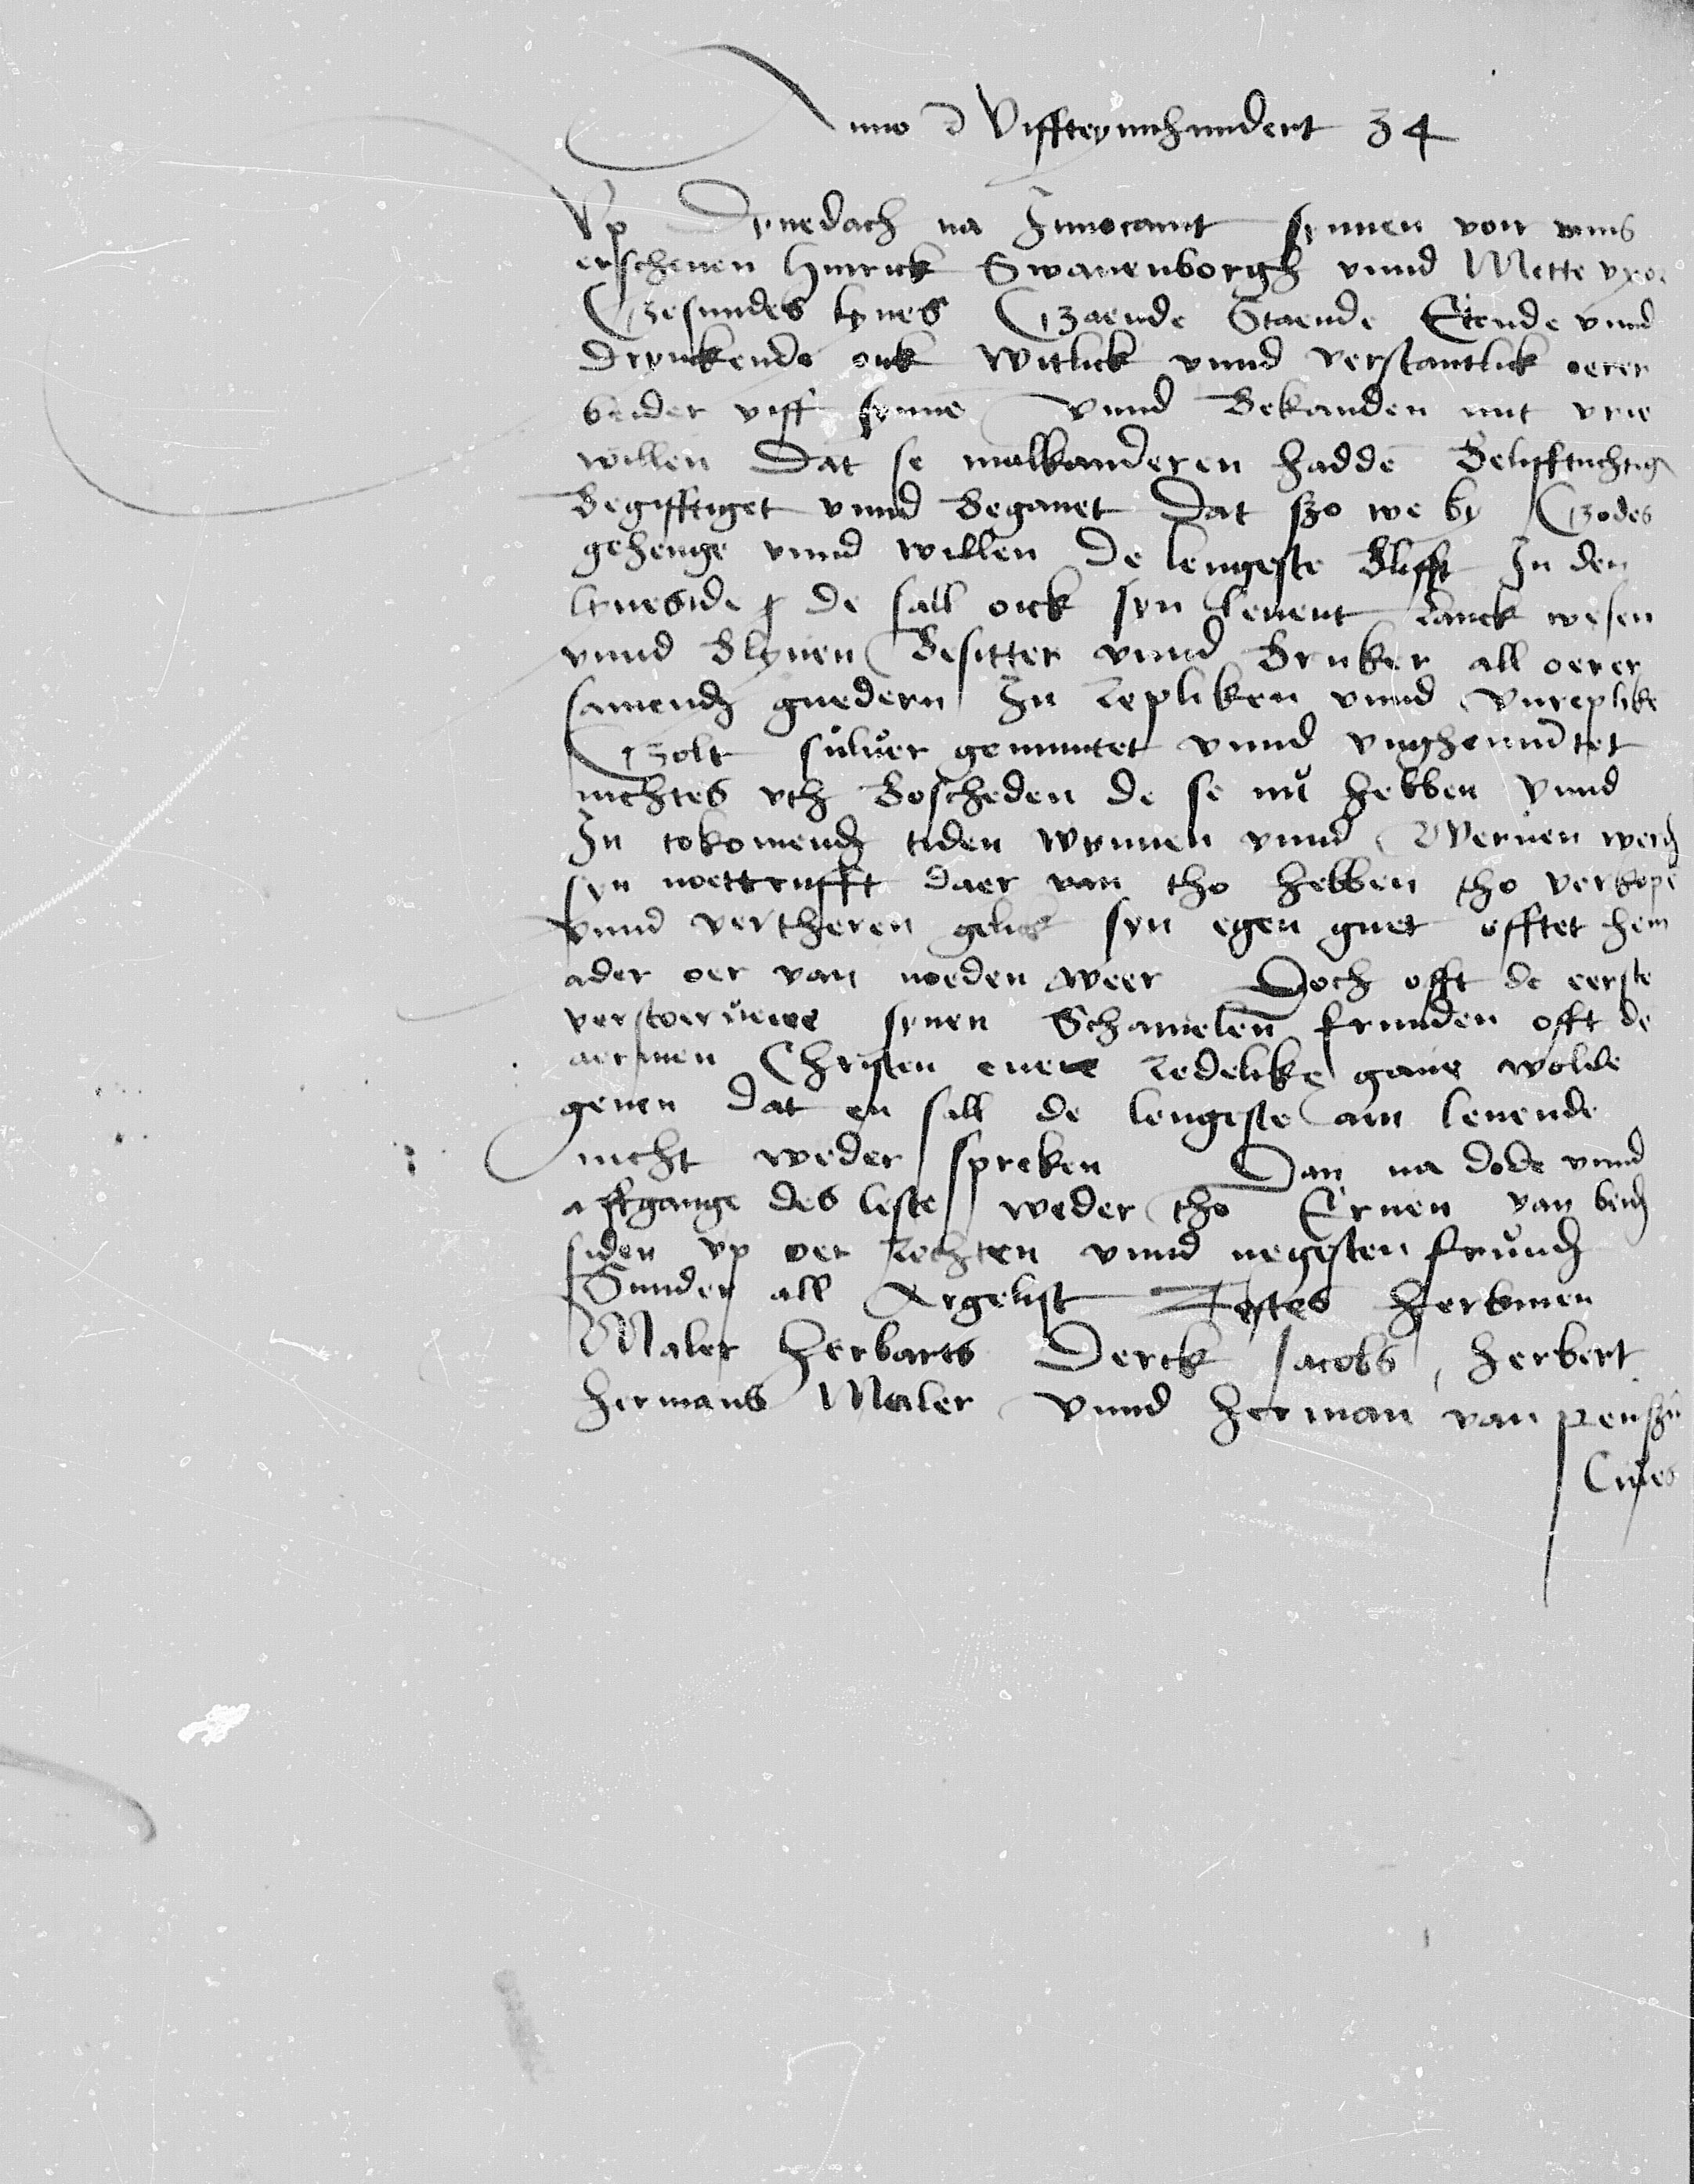 Anno d Viffteynhundert 34
Vp Dynsedach na Innocauit synnen vorr vnns
erschenen Hinrick Swanenborgh vnnd Mette vxor
Gesundes lyues Gaende Staende Etende vnnd
Drynckende ouk Witlick vnnd verstantlick oerer
beider viff synne vnnd Bekanden mit vrie
willen Dat se malkanderen hadde Belifftuchtig
Begifftiget vnnd Begauet Dat szo we by Godes
gehenge vnnd willen De lengeste Blifft In den
lyueside de sall ock syn leuent lanck wesen
vnnd Blyuen Besitter vnnd Bruker all oerer
samend guedern In Repliken vnnd Vnreplike
Golt suluer gemuntet vnnd vnghemuntet
nichtes vth Bescheden de se nu hebben Vnnd
In tokomend tiden wynnen vnnd Weruen werd
syn noettrufft daer van tho hebben tho verkope
vnnd vertheren gelick syn egen guet offtet hem
ader oer van noeden weer Doch offt de eerste
verstoeruene synen Schamelen frunden offt de
aermen Christen euene Redelike gaue wolde
geuen dat en sall de lengeste am leuende
nicht weder spreken Dan na dode vnnd
affgange des leste weder tho Eruen van beid
siden vp oer Rechten vnnd negesten frund
Sunder all Argelist Testes Hermen
Maler Herbarts Derck Jacobs, Herbert
Hermans Maler vnnd Herman van
Ciues